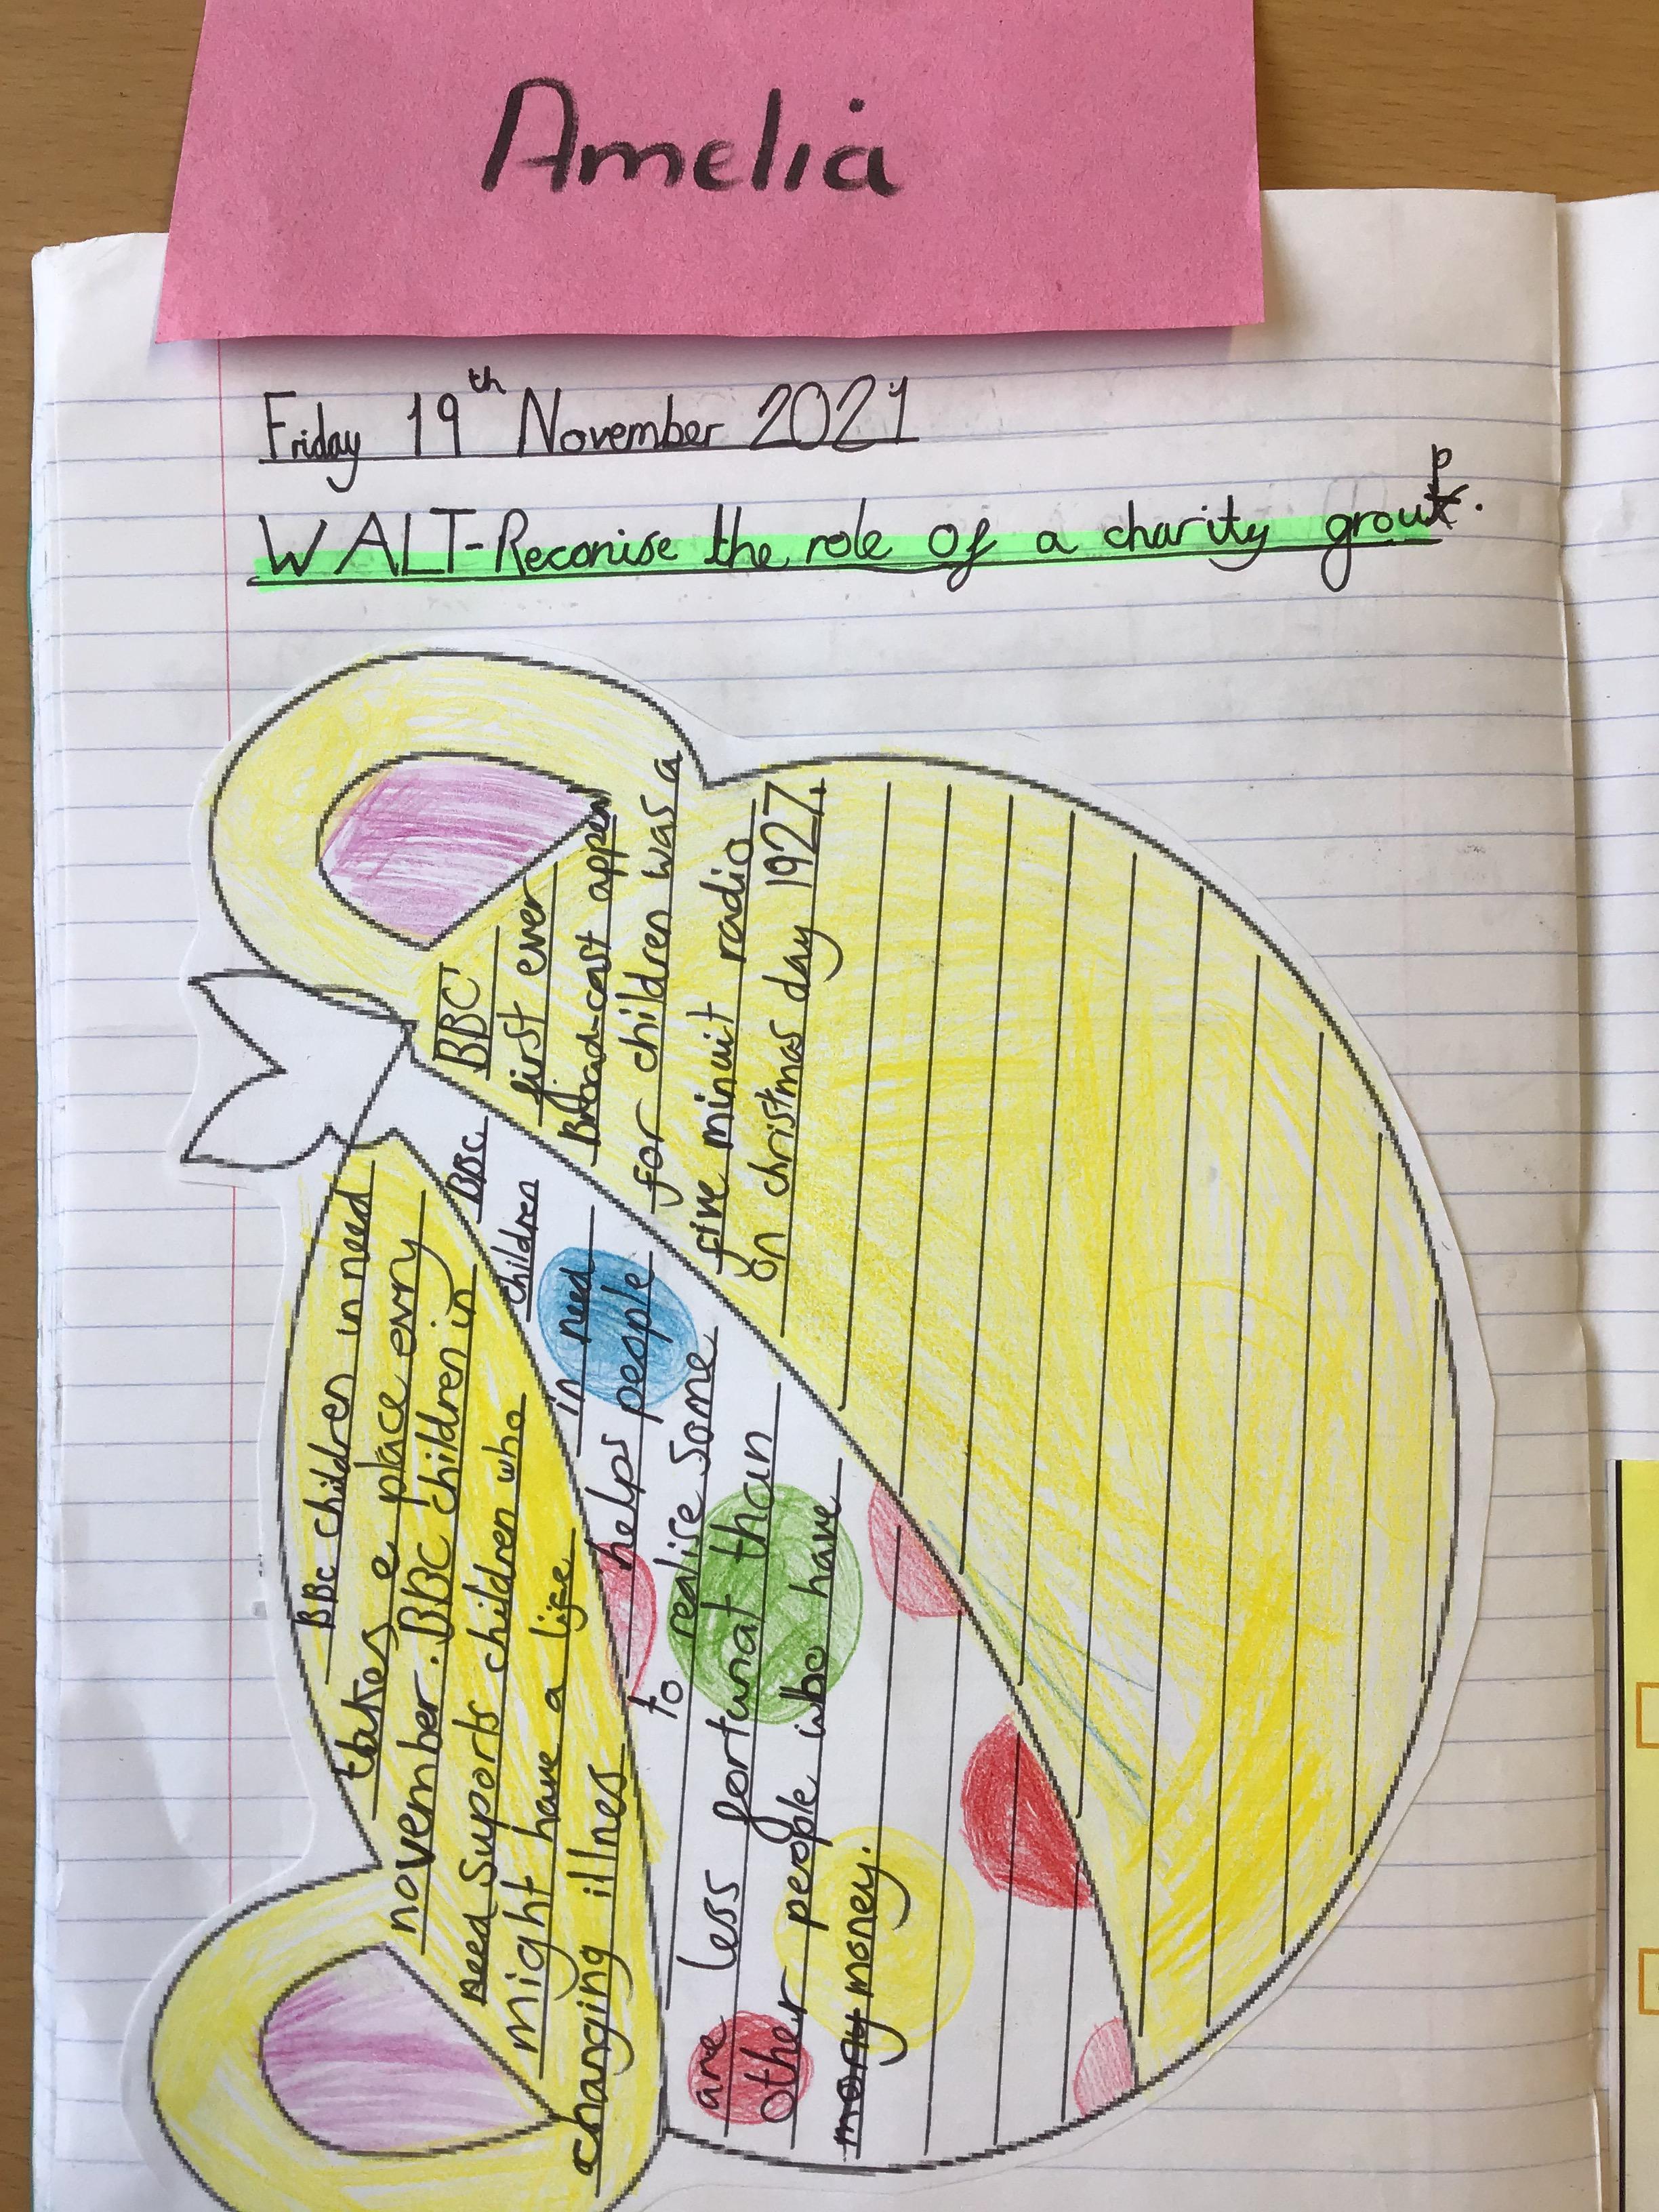 Amelia
Friday 19th November 2021
WALT-Reconise the role of a charity group.
BBC children in need
takes e place evry
november. BBC children in
need supports children who
might have a life
changing illnes
BBC
children
in need
helps people
to realise some
are less fortunat than
other people who have
mony money.
BBC'
first ever
Broad-cast appeal
for children was a
five minuit radio
on christmas day 1927.